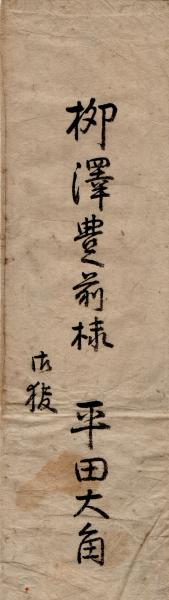 柳澤豊前様
平田大角
御披